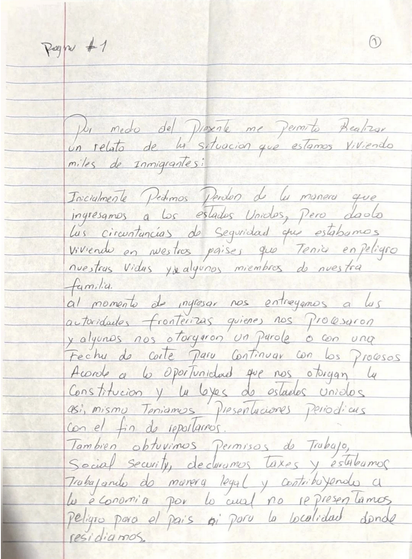 Pagina #1
1
Por medio del Presente me Permito Realizar
un relato de la situacion que estamos viviendo
miles de Inmigrantes:
Inicialmente Pedimos Perdon de la manera que
ingresamos a los estados Unidos, Pero dado
las circuntancias de Seguridad que estabamos
viviendo en nuestros paises que Tenia en peligro
nuestras vidas y algunos miembros de nuestra
familia.
al momento de ingresar nos entregamos a las
autoridades fronterizas quienes nos Procesaron
y algunos nos otorgaron un parole o con una
Fecha de corte Para Continuar con los Procesos
Acorde a la oportunidad que nos otorgan la
Constitucion y la leyes de estados Unidos
asi, mismo Teniamos Presentaciones Periodicas
con el fin de reportarnos.
Tambien obtuvimos Permisos de Trabajo,
Social Security, declaramos Taxes y estabamos
Trabajando de manera legal y contribuyendo a
la economia por lo cual no representamos
Peligro para el pais ni para la localidad donde
residiamos.